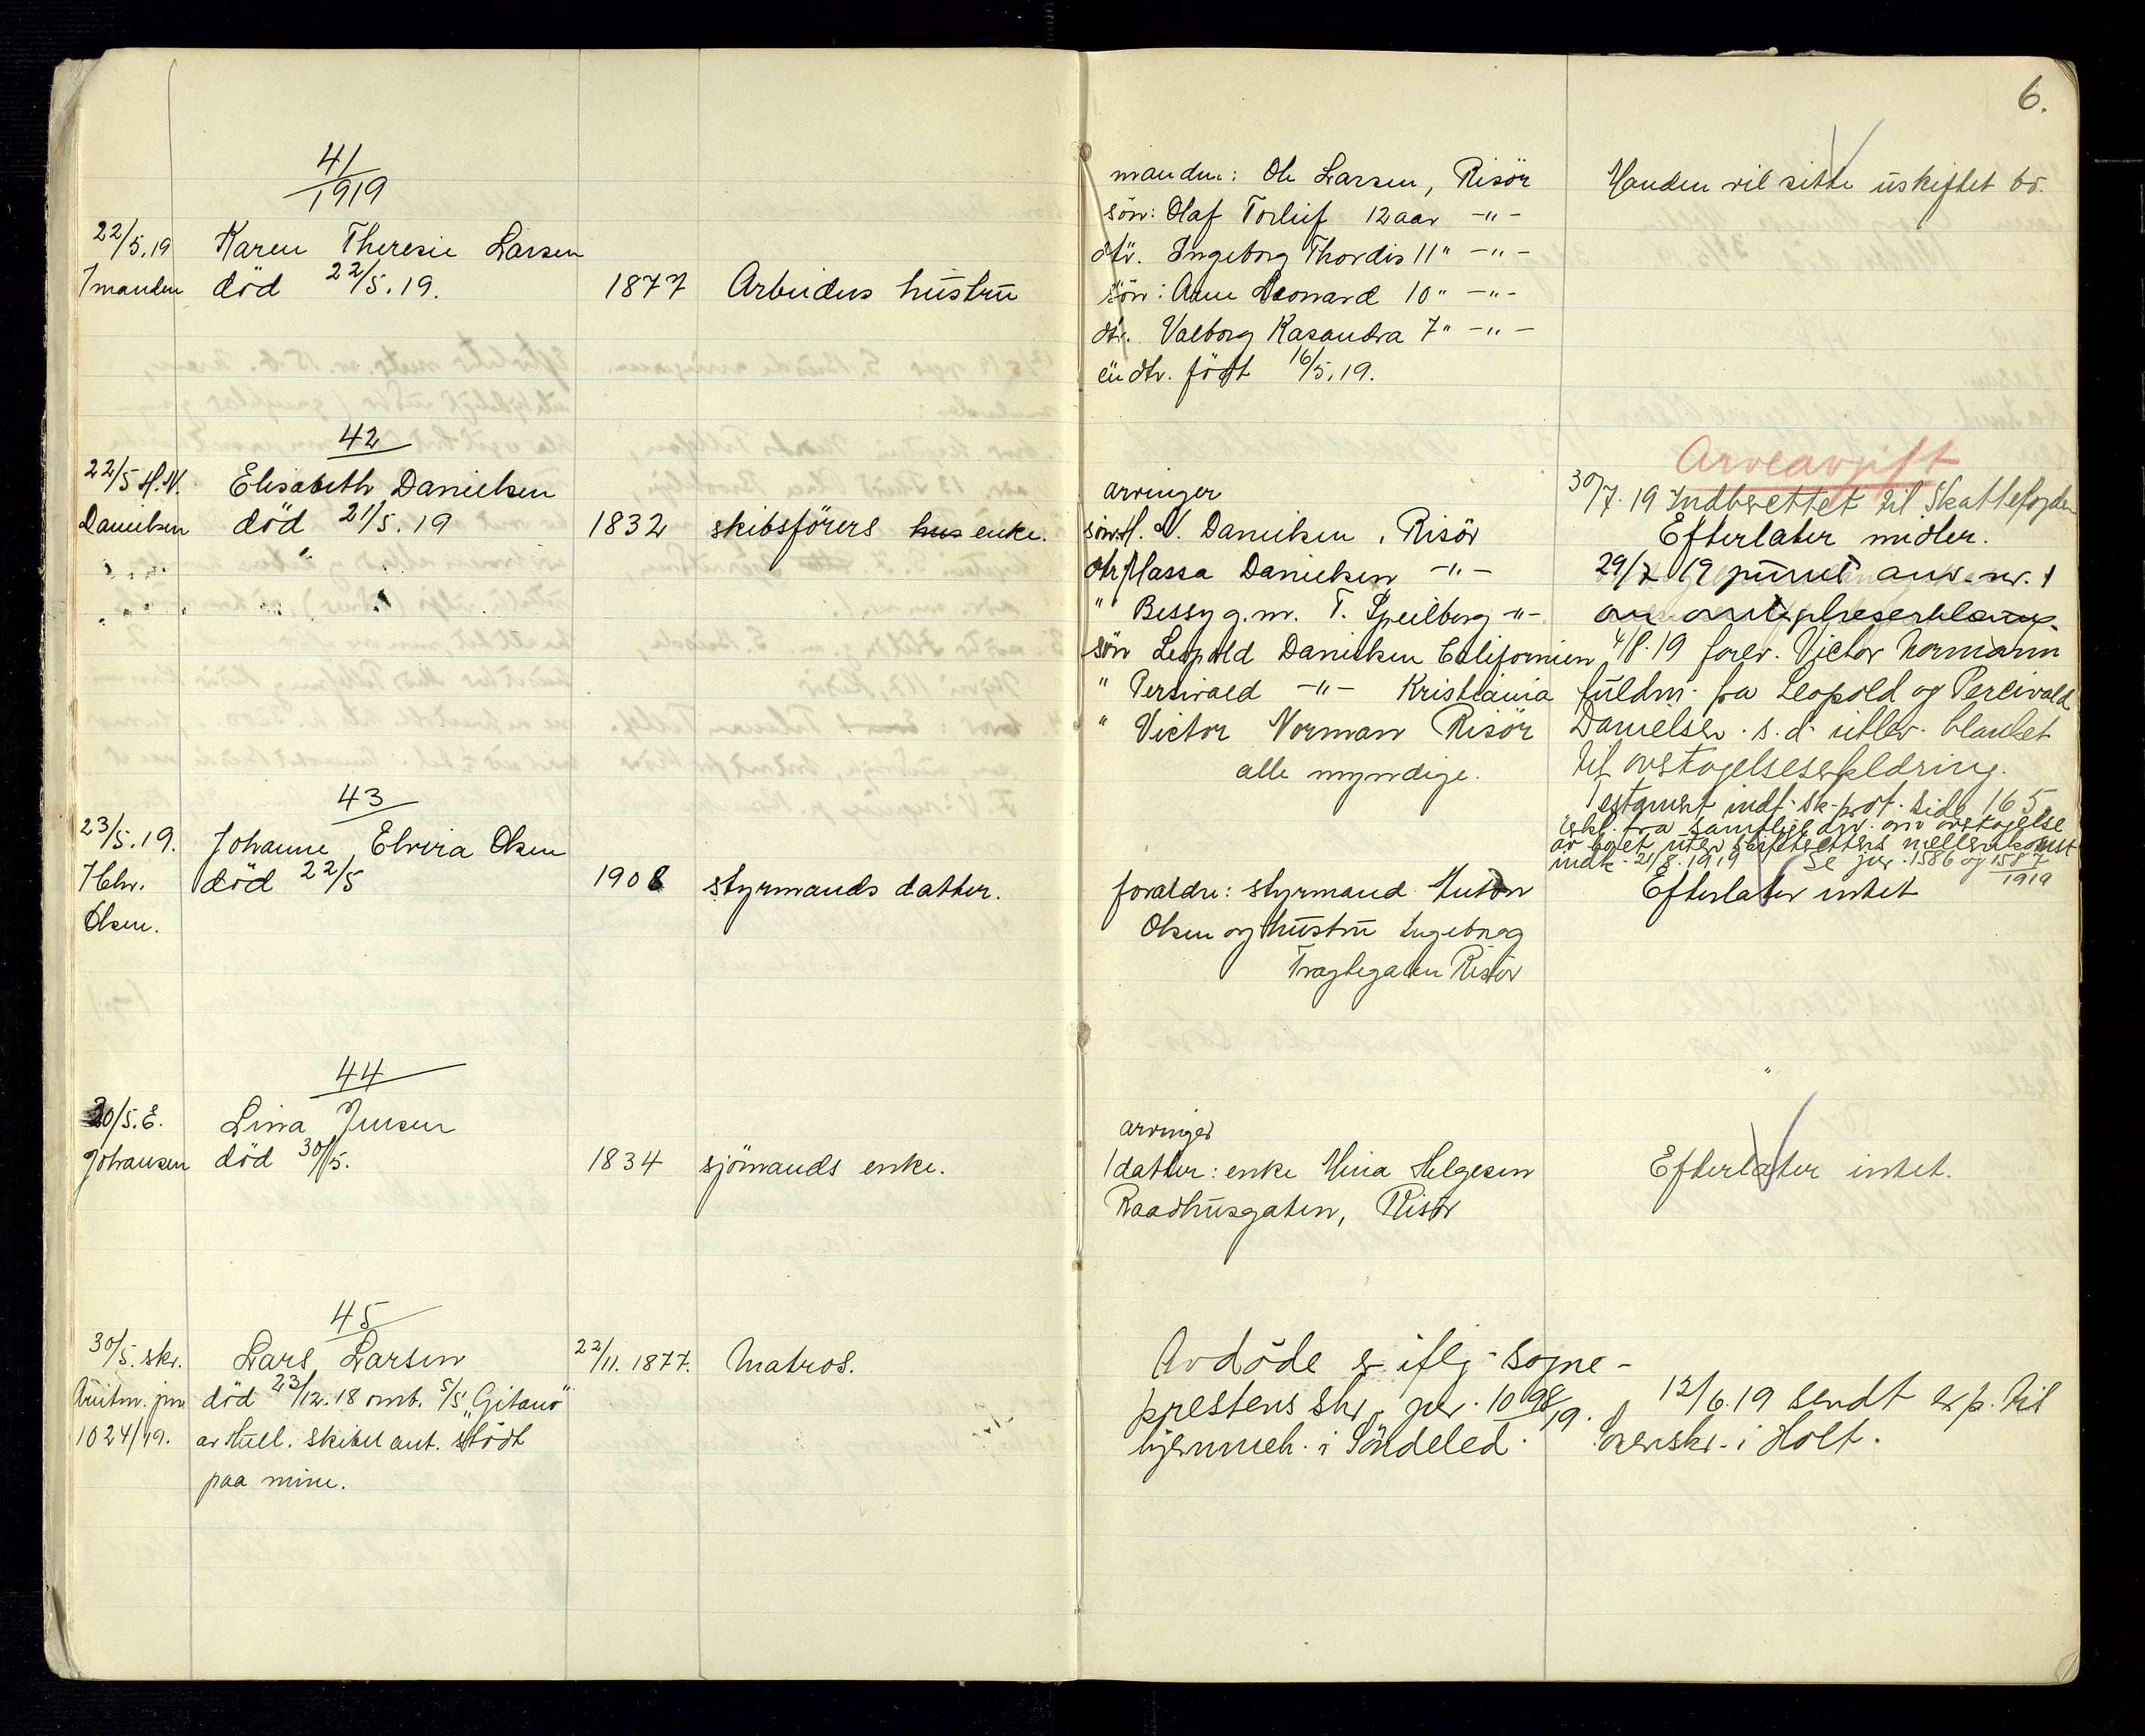 6.
41/1919
22/5.19 Karen Theresie Larsen
v/manden död 22/5.19. 1877 Arbeiders hustru
manden: Ole Larsen, Risör
sön: Olaf Torleif 12 aar -"-
dtr. Ingeborg Thordis 11" -"-
sön: Arne Leonard 10" -"-
dtr. Valborg Kasandra 7" -"-
en dtr. född 16/5.19.
Manden vil sitte i uskiftet bo.
42
22/5 H.N. Elisabeth Danielsen
Danielsen död 21/5.19 1832 skibsförers hus enke.
arvinger
sön H. N. Danielsen, Risör
dtr Massa Danielsen -"-
" Bessy g.m. T. Speilberg -"-
sön Leopold Danielsen Californien
" Percivald -"- Kristiania
" Victor Norman Risör
alle myndige.
Arveavgift
30/7.19 Indberettet til Skattefogden
Efterlater midler.
29/7 19
4/8.19 forev. Victor Normann
fuldm. fra Leopold og Percivald
Danielsen. s.d. utlev. blanket
til overtagelseserkldring.
Testament indf. sk-prot. side 165
erkl. fra samtlige arv. om overtagelse
av boet uten skifterettens mellemkomst
indk. 21/8.1919 Se jnr. 1586 og 1587/1919
43
23/5.19. Johanne Elvira Olsen
v/Chr. död 22/5 1908 styrmands datter.
Olsen.
foraldre: styrmand Anton
Olsen og hustru Ingeborg
Tragtegaten Risör
Efterlater intet
44
30/5. E. Lina Jensen
Johansen död 30/5. 1834 sjömands enke.
arvinger
1 datter: enke Mina Helgesen
Raadhusgaten, Risör
Efterlater intet.
45
30/5. skr. Lars Larsen 22/11.1877. Matros.
Amtm. jnr död 23/12.18 omb. S/S "Gitano"
1024/19. av Hull. skibet ant. stödt
paa mine.
Avdöde er iflg. sogne-
prestens skr. jnr. 1098/19.
hjemmeh. i Söndeled.
12/6.19 sendt exp. til
Sorenskr. i Holt.